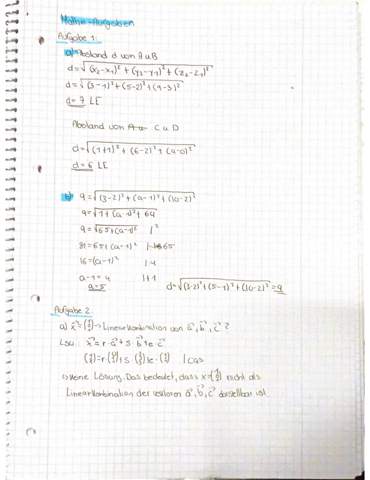 Mathe-Aufgaben
Aufgabe 1:
a) Abstand d von A u B
d=√(x₂-x₁)² + (y₂-y₁)² + (z₂-z₁)²
d=√(3-1)² + (5-2)² + (9-3)²
d=7 LE
Abstand von C u D
d=√(1+1)² + (6-2)² + (4-0)²
d=6 LE
b) 9=√(3-2)² + (a-1)² + (10-2)²
9=√1+(a-1)² + 64
9=√65+(a-1)² |²
81=65+(a-1)² |-65
16=(a-1)² |√
a-1=4 |+1
a=5 d=√(3-2)²+(5-1)²+(10-2)² =9
Aufgabe 2:
a) Linearkombination von a⃗, b⃗, c⃗ ?
Lsg: x⃗=r·a⃗+s·b⃗+t·c⃗
| LGS
keine Lösung. Das bedeutet, dass nicht als
Linearkombination der vektoren a⃗, b⃗, c⃗ darstellbar ist.